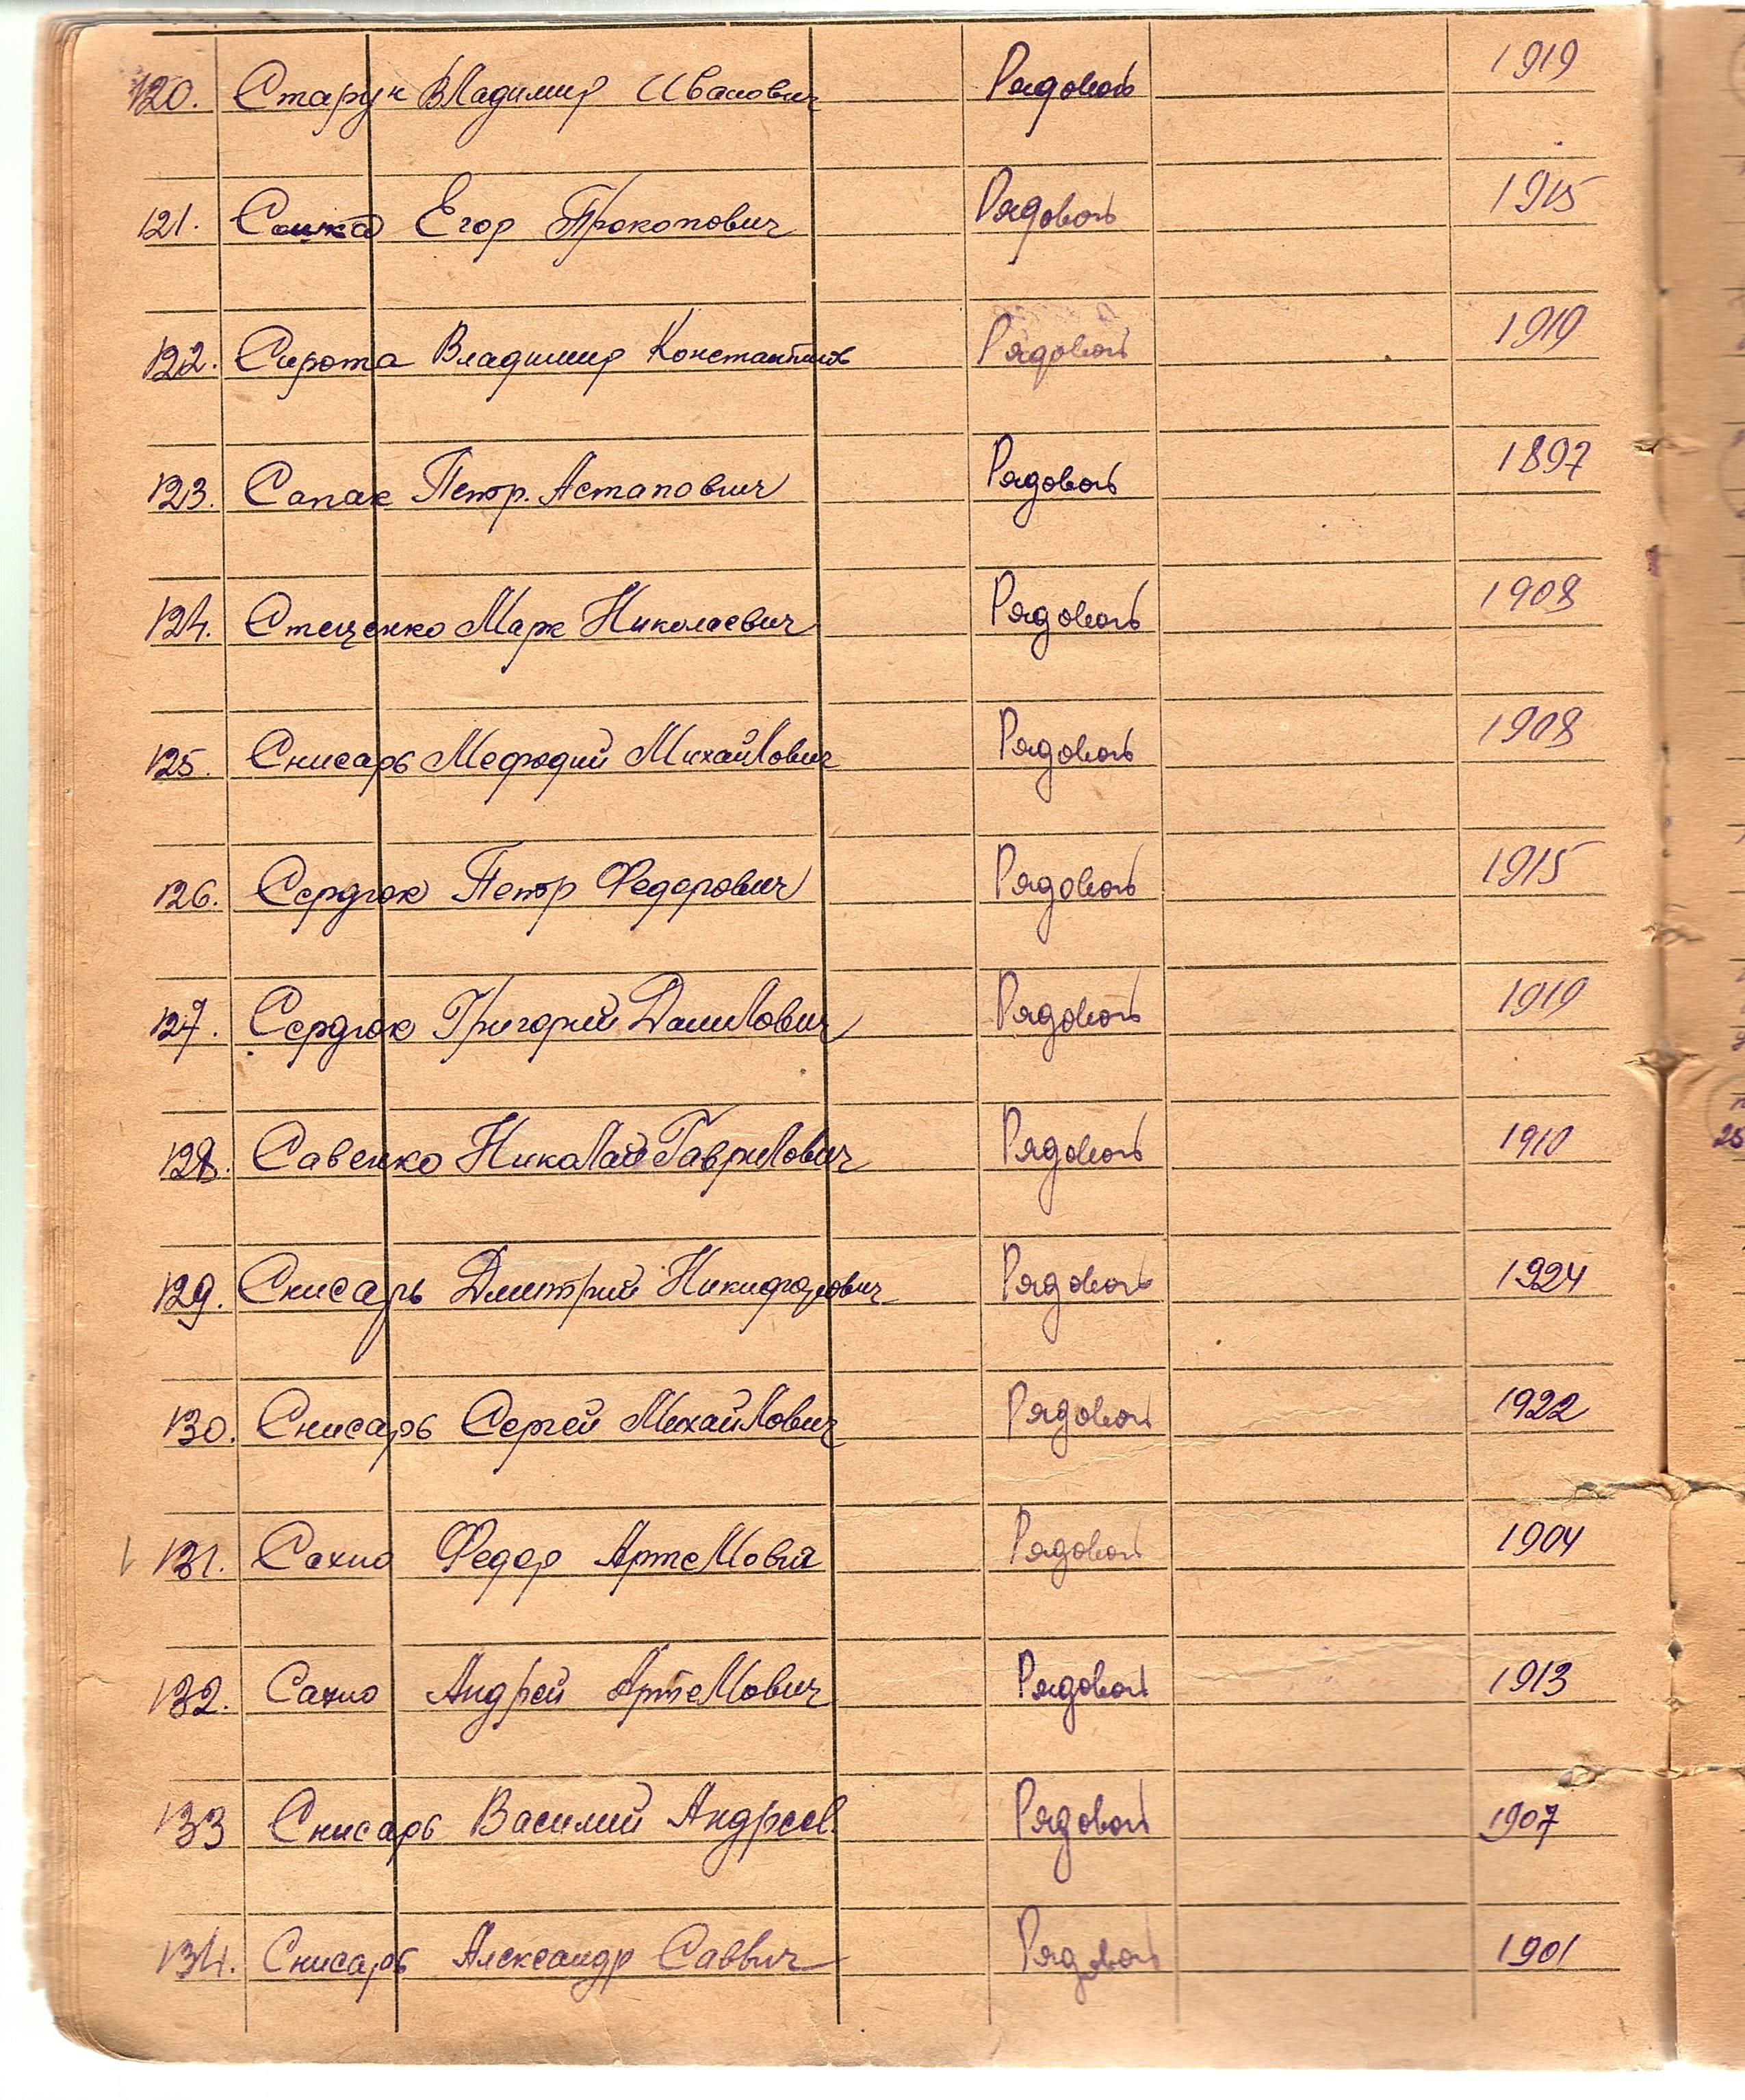 120. Старун Владимир Иванович Рядовой 1919
121. Егор Прокопович Рядовой 1915
122. Сирота Владимир Константинов Рядовой 1919
123. Сапак Петр. Астапович Рядовой 1897
124. Стеценко Марк Николаевич Рядовой 1908
125. Снисарь Мефодий Михайлович Рядовой 1908
126. Сердюк Петр Федорович Рядовой 1915
127. Сердюк Григорий Данилович Рядовой 1919
128. Савенко Николай Гаврилович Рядовой 1910
129. Снисарь Дмитрий Никифорович Рядовой 1924
130. Снисарь Сергей Михайлович Рядовой 1922
131. Сахно Федор Артемович Рядовой 1904
132. Сахно Андрей Артемович Рядовой 1913
133 Снисарь Василий Андреев. Рядовой 1907
134. Снисарь Александр Саввич Рядовой 1901